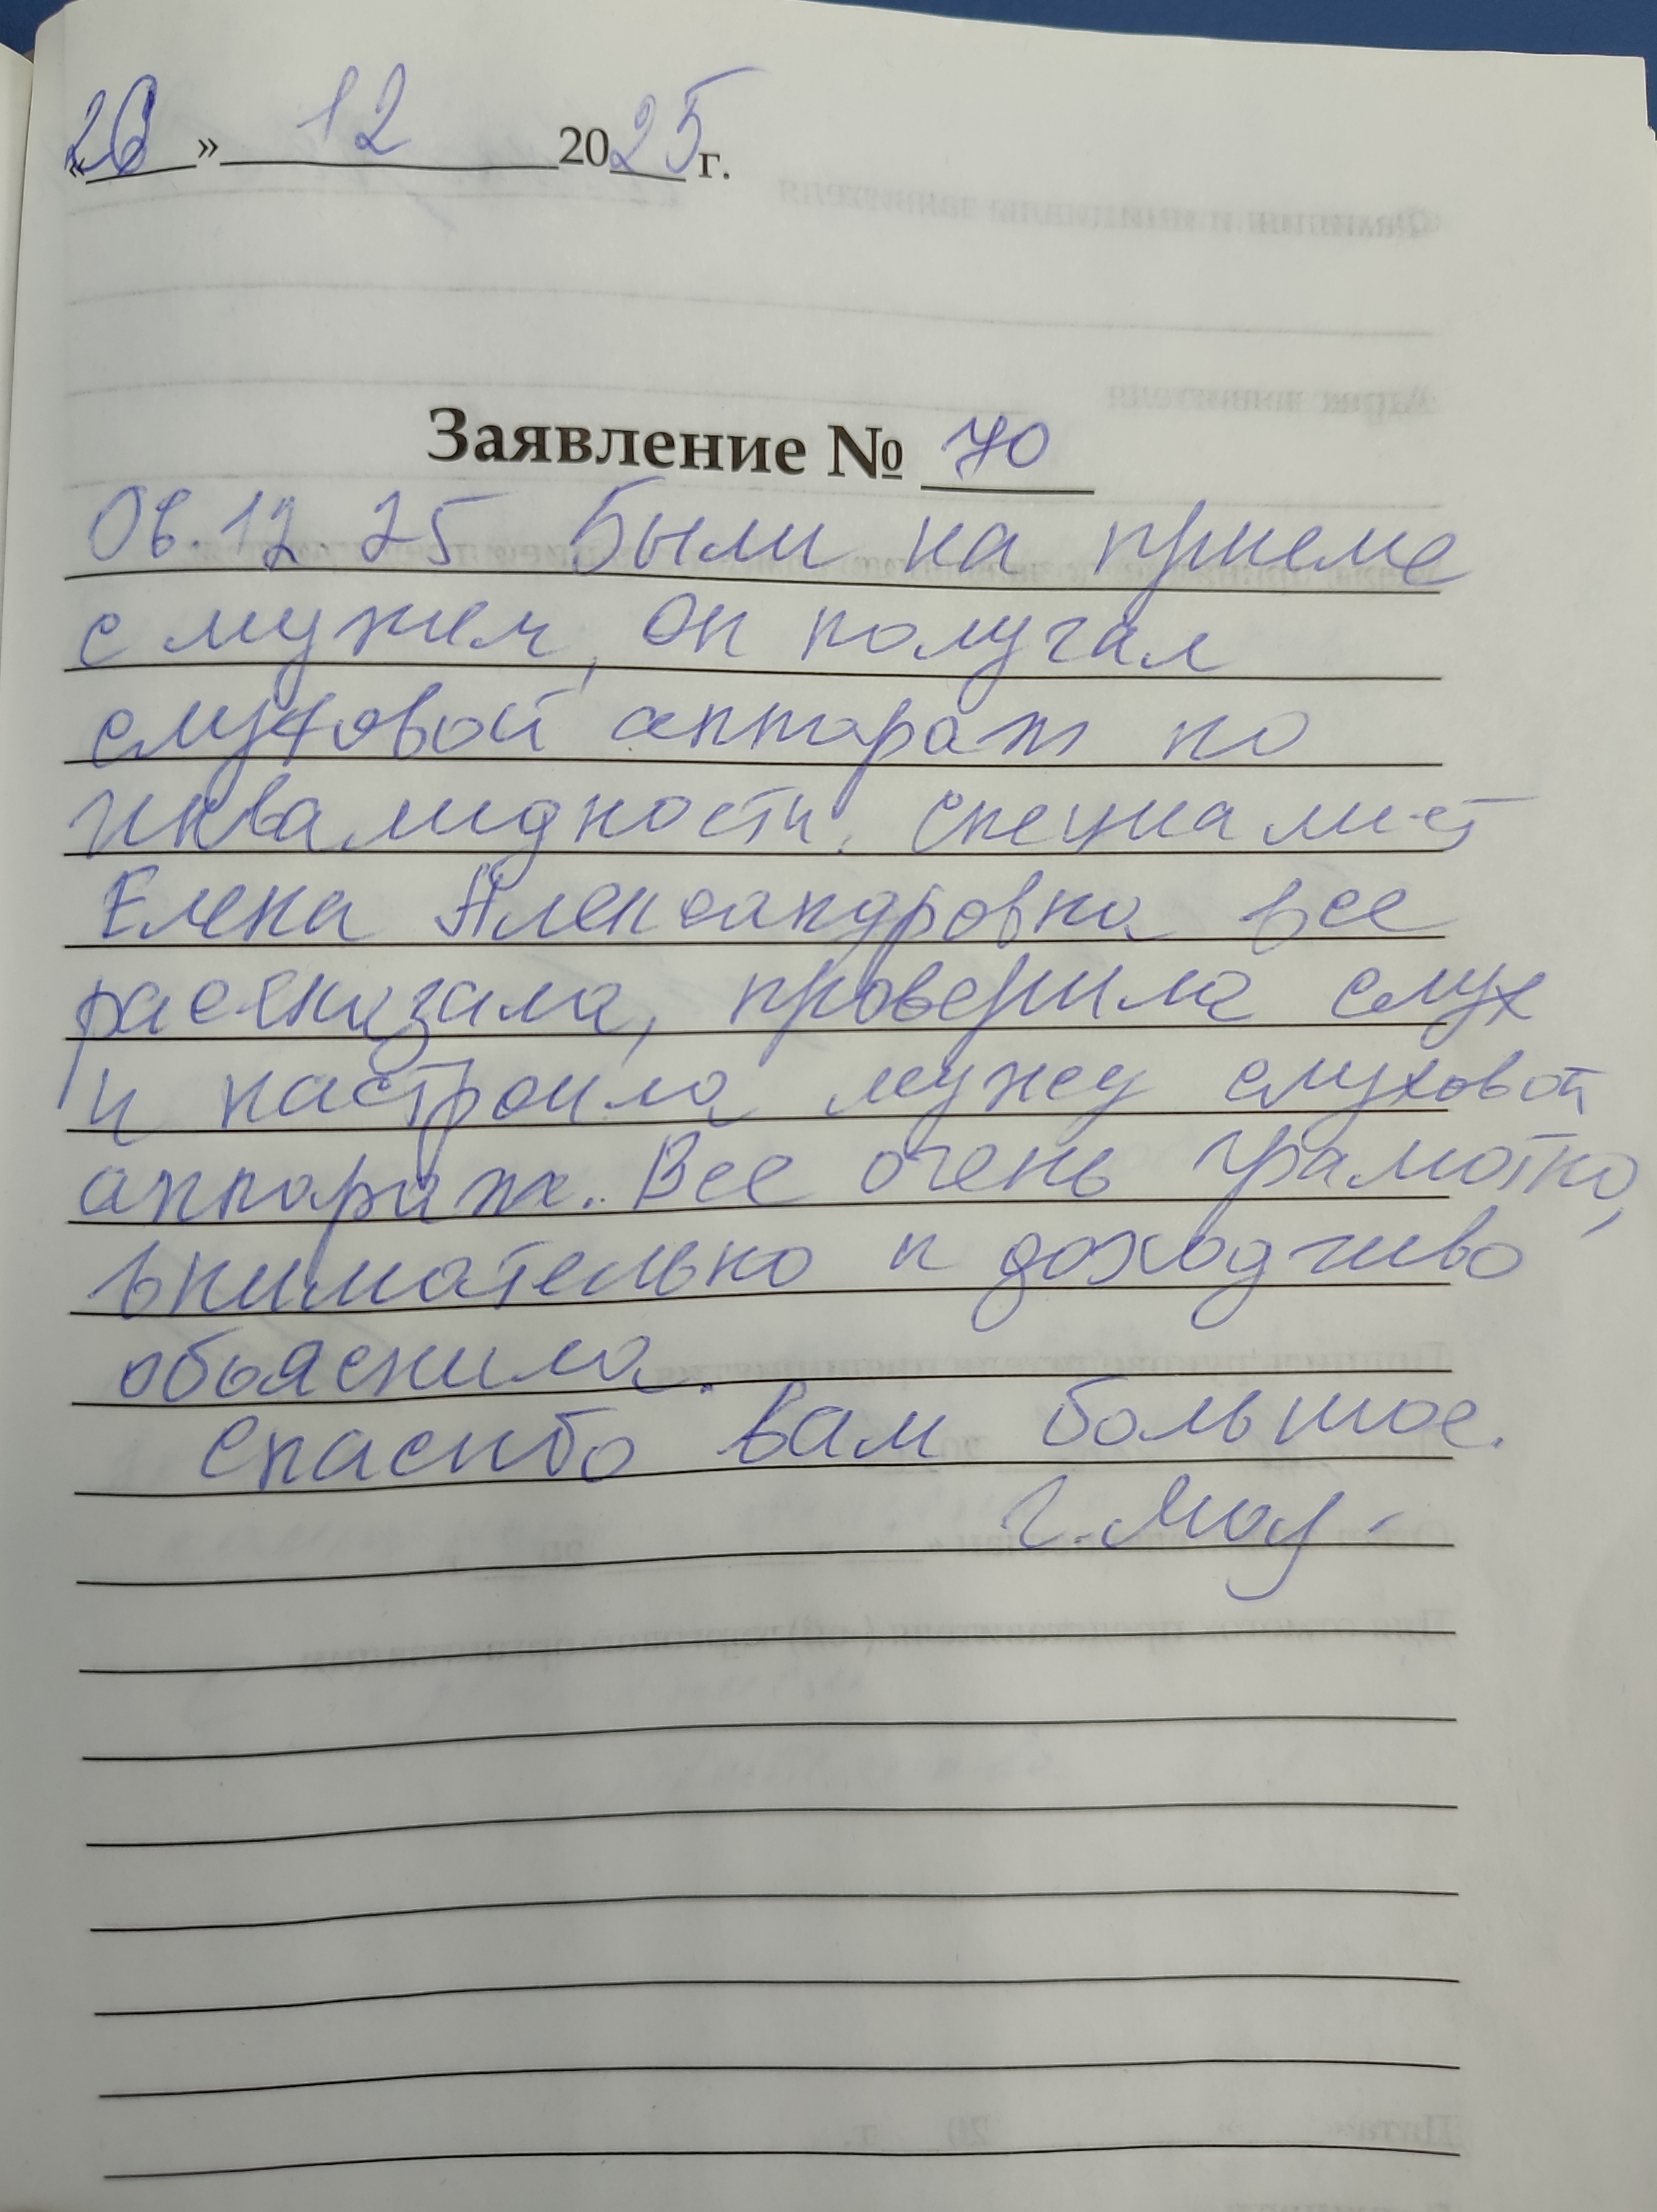 « » 12 2025 г.
Заявление № 70
08.12.25 Были на приеме
с мужем, он получал
слуховой аппарат по
инвалидности. специалист
Елена Александровна все
рассказала, проверила слух
и настроила мужу слуховой
аппарат. Все очень грамотно,
внимательно и доходчиво
обьяснила.
спасибо вам большое.